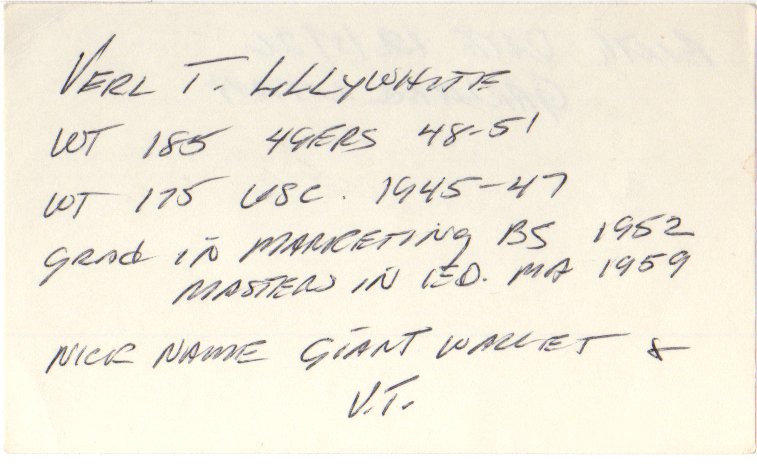 VERL T. LILLYWHITE
WT 185 49ERS 48-51
WT 175 USC. 1945-47
GRAD IN MARKETING BS 1952
MASTERS IN ED. MA 1959
NICK NAME GIANT WALLET &
V.T.